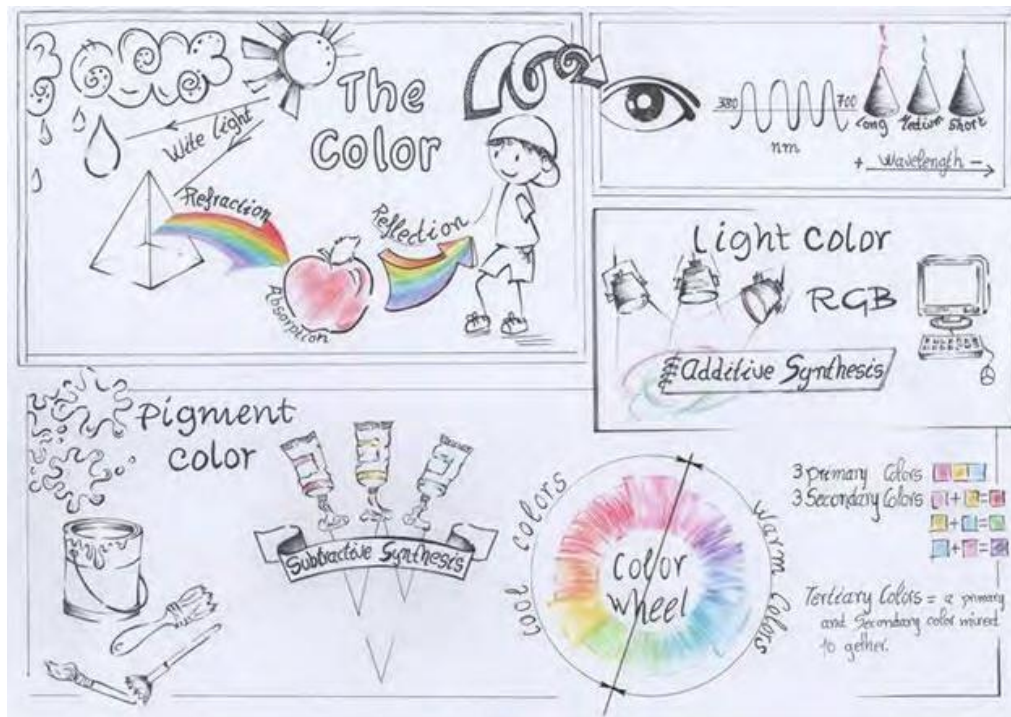 The
Color
Wite light
Refraction
Reflection
Absorption
380
700
nm
Long
Medium
Short
+ Wavelength -
Light Color
RGB
Additive Synthesis
Pigment
color
Subtractive Synthesis
col colors
Color
wheel
warm Colors
3 primary Colors
3 Secondary Colors
+ =
+ =
+ =
Tertiary Colors = a primary
and Secondary color mixed
to gether.